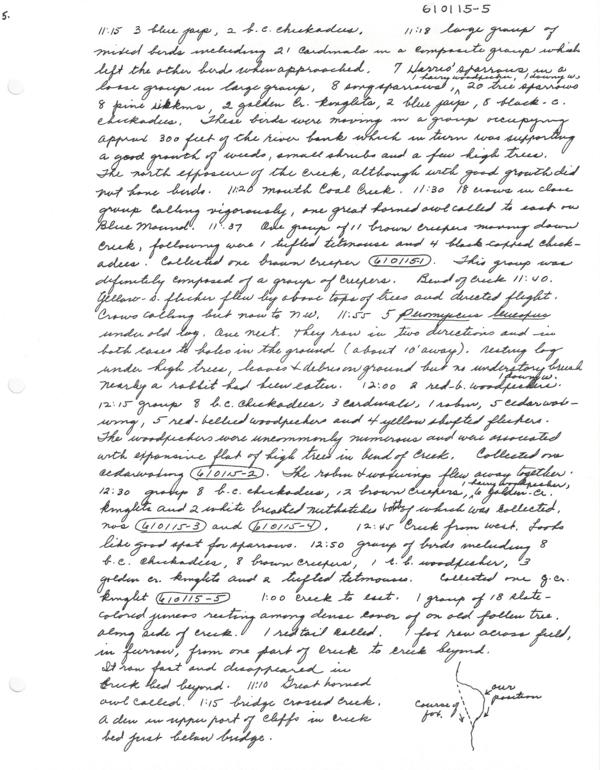 610115-5
5.
11:15 3 blue jays, 2 b.c. chickadees. 11:18 large group of
mixed birds including 21 cardinals in a composite group which
left the other birds when approached. 7 Harris' sparrows in a
1 hairy woodpecker, 1 downy w.
loose group in large group, 8 song sparrows, 20 tree sparrows
8 pine siskins, 2 golden cr. kinglets, 2 blue jays, 8 black-c.
chickadees. These birds were moving in a group occupying
approx 300 feet of the river bank which in turn was supporting
a good growth of weeds, small shrubs and a few high trees.
The north exposure of the creek, although with good growth did
not have birds. 11:20 mouth Coal Creek. 11:30 18 crows in close
group calling vigorously, one great horned owl called to east on
Blue Mound. 11:37 One group of 11 brown creepers moving down
creek, following were 1 tufted titmouse and 4 black-capped chick-
adees. Collected one brown creeper (610115-1). This group was
definitely composed of a group of creepers. Bend of creek 11:40.
Yellow-s. flicker flew by above tops of trees and directed flight.
Crows calling but now to N.W. 11:55 5 Peromyscus leucopus
under old log. One nest. They ran in two directions and in
both cases to holes in the ground (about 10' away). resting log
under high trees, leaves & debris on ground but no understory brush
nearby a rabbit had been eaten. 12:00 2 red-b. woodpeckers.
1 downy w.
12:15 group 8 b.c. chickadees, 3 cardinals, 1 robin, 5 cedar wax-
wing, 5 red-bellied woodpeckers and 4 yellow shafted flickers.
The woodpeckers were uncommonly numerous and were associated
with expansive flat of high trees in bend of creek. Collected one
cedar waxwing (610115-2). The robin & waxwings flew away together.
1 hairy woodpecker,
12:30 group 8 b.c. chickadees, 12 brown creepers, 6 golden-cr.
kinglets and 2 white breasted nuthatches both of which was collected,
nos (610115-3) and (610115-4). 12:45 Creek from west. Looks
like good spot for sparrows. 12:50 group of birds including 8
b.c. chickadees, 8 brown creepers, 1 r.b. woodpecker, 3
golden cr. kinglets and 2 tufted titmouses. Collected one g.cr.
kinglet (610115-5) 1:00 creek to east. 1 group of 18 slate-
colored juncos resting among dense cover of an old fallen tree.
along side of creek. 1 redtail called. 1 fox ran across field,
in furrow, from one part of creek to creek beyond.
It ran fast and disappeared in
creek bed beyond. 11:10 Great horned
owl called. 1:15 bridge crossed creek.
A den in upper part of cliffs in creek
bed just below bridge.
our
position
course of
fox.